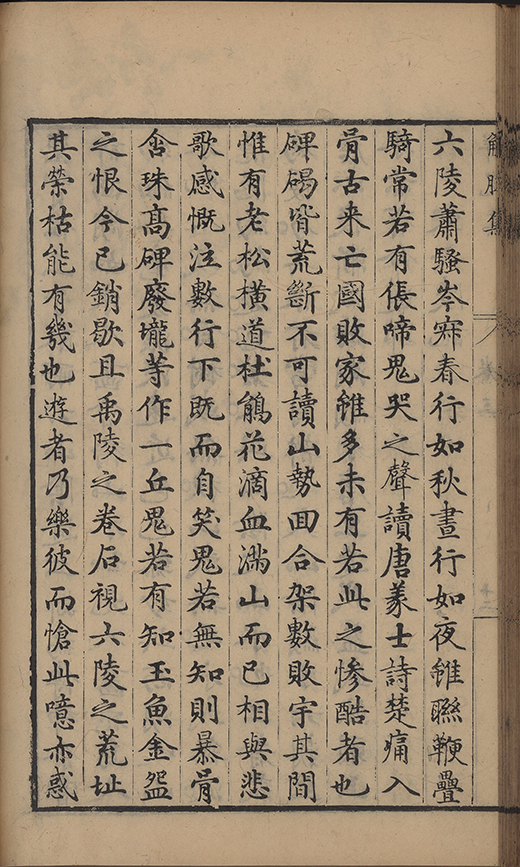 解脫集
六陵蕭騷岑㝧春行如秋晝行如夜雖聯鞭疊
騎常若有倀啼鬼哭之聲讀唐義士詩楚痛入
骨古来亡國敗家雖多未有若此之慘酷者也
碑碣皆荒斷不可讀山勢回合架數敗宇其間
惟有老松橫道杜鵑花滴血滿山而已相與悲
歌感慨注數行下既而自笑鬼若無知則暴骨
含珠高碑廢壠等作一丘鬼若有知玉魚金盌
之恨今已銷歇且禹陵之卷石視六陵之荒址
其榮枯能有幾也遊者乃樂彼而愴此噫亦惑